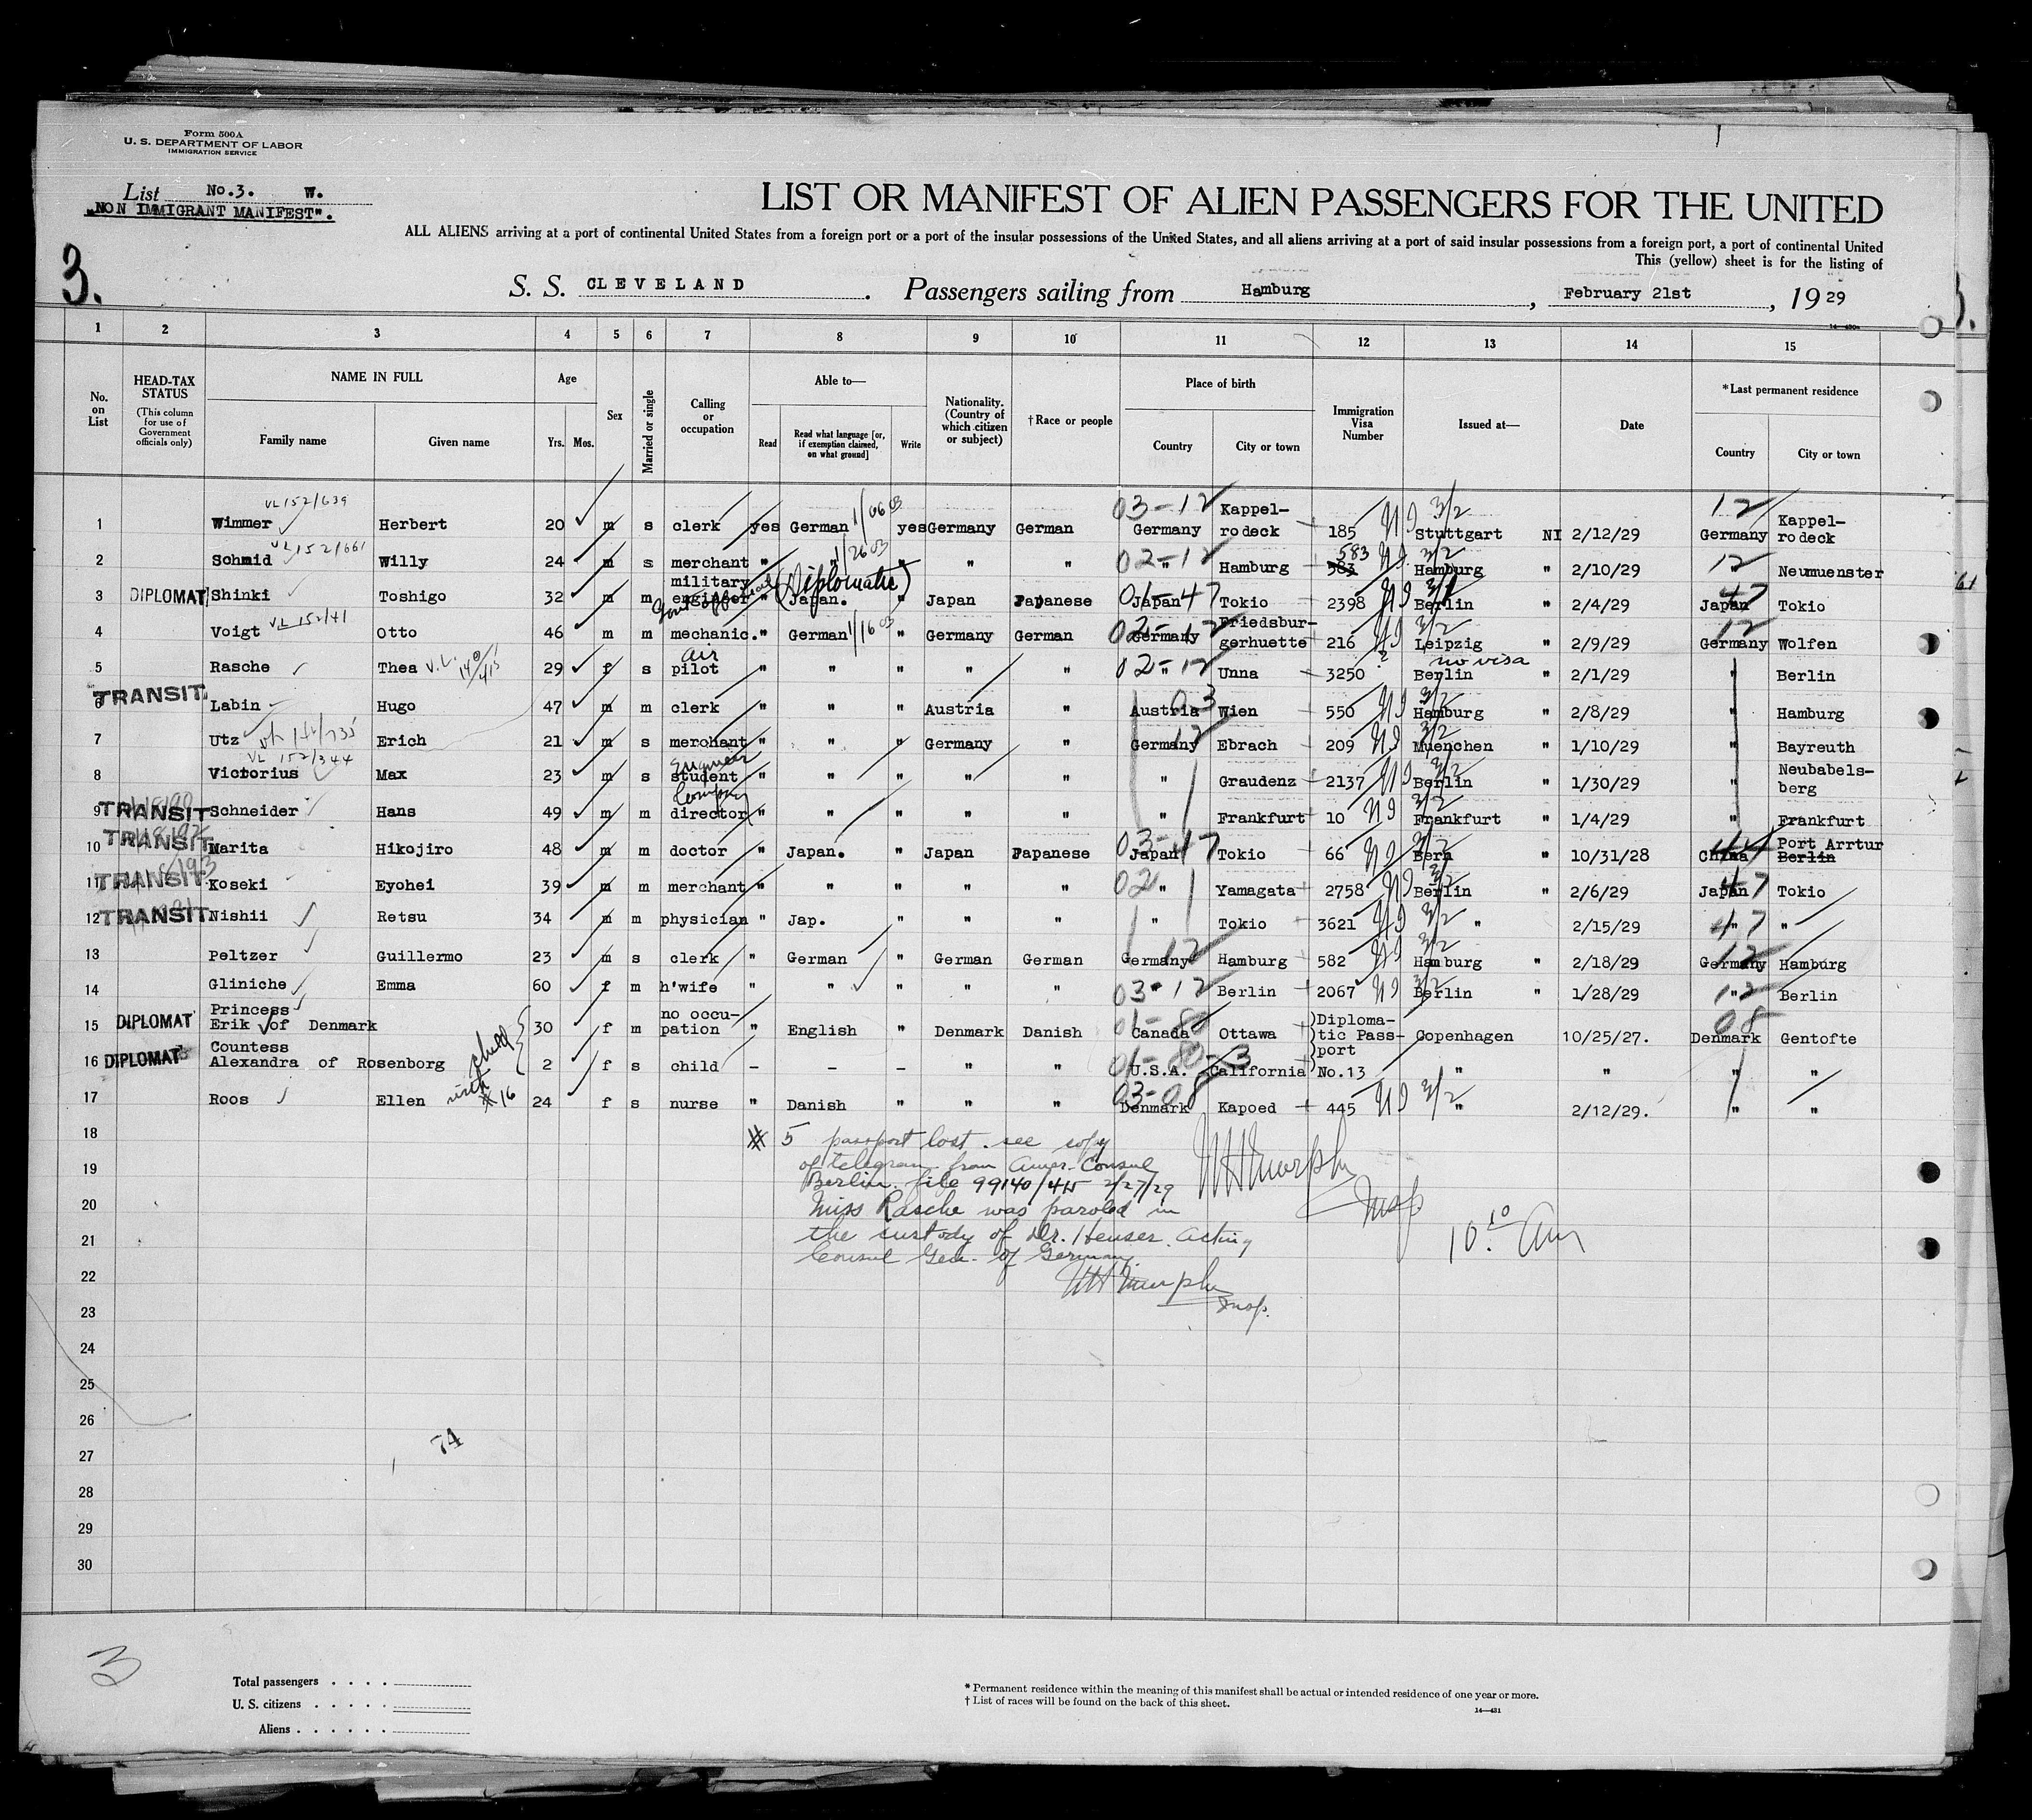 Form 500A
U. S. DEPARTMENT OF LABOR
IMMIGRATION SERVICE
List No.3. W.
"NON IMMIGRANT MANIFEST".
3.
LIST OR MANIFEST OF ALIEN PASSENGERS FOR THE UNITED
ALL ALIENS arriving at a port of continental United States from a foreign port or a port of the insular possessions of the United States, and all aliens arriving at a port of said insular possessions from a foreign port, a port of continental United
This (yellow) sheet is for the listing of
S. S. CLEVELAND . Passengers sailing from Hamburg , February 21st , 19 29
1 2 3 4 5 6 7 8 9 10 11 12 13 14 15
No. on List
HEAD-TAX STATUS
(This column for use of Government officials only)
NAME IN FULL
Family name Given name
Age
Yrs. Mos.
Sex
Married or single
Calling or occupation
Able to—
Read Read what language [or, if exemption claimed, on what ground] Write
Nationality. (Country of which citizen or subject)
† Race or people
Place of birth
Country City or town
Immigration Visa Number
Issued at—
Date
* Last permanent residence
Country City or town
VL 152/639 1/06 03 03-12 NI 3/2 12
1 Wimmer Herbert 20 m s clerk yes German yes Germany German Germany Kappel-rodeck 185 Stuttgart NI 2/12/29 Germany Kappel-rodeck
VL 152/661 1/26 03 02-12 583 NI 3/2 12
2 Schmid Willy 24 m s merchant " " " " " " Hamburg 583 Hamburg " 2/10/29 Neumuenster
3 DIPLOMAT Shinki Toshigo 32 m m military engineer " Japan. (Diplomatic) " Japan Japanese Japan 01-47 Tokio 2398 NI Berlin " 2/4/29 Japan 47 Tokio
VL 152/41 1/16 03 02-12 NI 3/2 12
4 Voigt Otto 46 m m mechanic. " German " Germany German Germany Friedsbur-gerhuette 216 Leipzig " 2/9/29 Germany Wolfen
5 Rasche Thea V.L. 29 f s air pilot " " " " " 02-12 " Unna 3250 ? no visa Berlin " 2/1/29 " Berlin
6 TRANSIT Labin Hugo 47 m m clerk " " " Austria " Austria 03 Wien 550 NI 3/2 Hamburg " 2/8/29 " Hamburg
7 Utz Erich 21 m s merchant " " " Germany " Germany 12 Ebrach 209 NI 3/2 Muenchen " 1/10/29 " Bayreuth
VL 152/344
8 Victorius Max 23 m s Engineer student " " " " " " Graudenz 2137 NI 3/2 Berlin " 1/30/29 " Neubabels-berg
9 TRANSIT Schneider Hans 49 m m Company director " " " " " " Frankfurt 10 NI 3/2 Frankfurt " 1/4/29 " Frankfurt
10 TRANSIT Marita Hikojiro 48 m m doctor " Japan. " Japan Japanese Japan 03-47 Tokio 66 NI 3/2 Bern " 10/31/28 China 44 Port Arrtur Berlin
11 TRANSIT Koseki Eyohei 39 m m merchant " " " " " 02 " Yamagata 2758 NI 3/2 Berlin " 2/6/29 Japan 47 Tokio
12 TRANSIT Nishii Retsu 34 m m physician " Jap. " " " " Tokio 3621 NI 3/2 " 2/15/29 47 " "
13 Peltzer Guillermo 23 m s clerk " German " German German Germany 12 Hamburg 582 NI 3/2 Hamburg " 2/18/29 Germany 12 Hamburg
14 Gliniche Emma 60 f m h'wife " " " " " 03-12 " Berlin 2067 NI 3/2 Berlin " 1/28/29 12 " Berlin
15 DIPLOMAT Princess Erik of Denmark 30 f m no occu-pation " English " Denmark Danish 01-80 Canada Ottawa Diploma-tic Pass-port No.13 Copenhagen 10/25/27. Denmark 08 Gentofte
16 DIPLOMAT Countess Alexandra of Rosenborg 2 f s child - - - " " 01-80-3 U.S.A. California " " " "
child with # 16
17 Roos Ellen 24 f s nurse " Danish " " " 03-08 Denmark Kapoed 445 NI 3/2 " 2/12/29. " "
18
19
20
21
22
23
24
25
26
27
28
29
30
# 5 passport lost. see copy
of telegram from Amer. Consul
Berlin. file 99140/45 2/27/29
Miss Rasche was paroled in
the custody of Dr. Heuser. Acting
Consul Gen. of Germany.
WH Murphy
Insp.
WH Murphy
Insp.
10:10 Am
74
3
Total passengers . . . .
U. S. citizens . . . . .
Aliens . . . . . .
* Permanent residence within the meaning of this manifest shall be actual or intended residence of one year or more.
† List of races will be found on the back of this sheet.
14—431